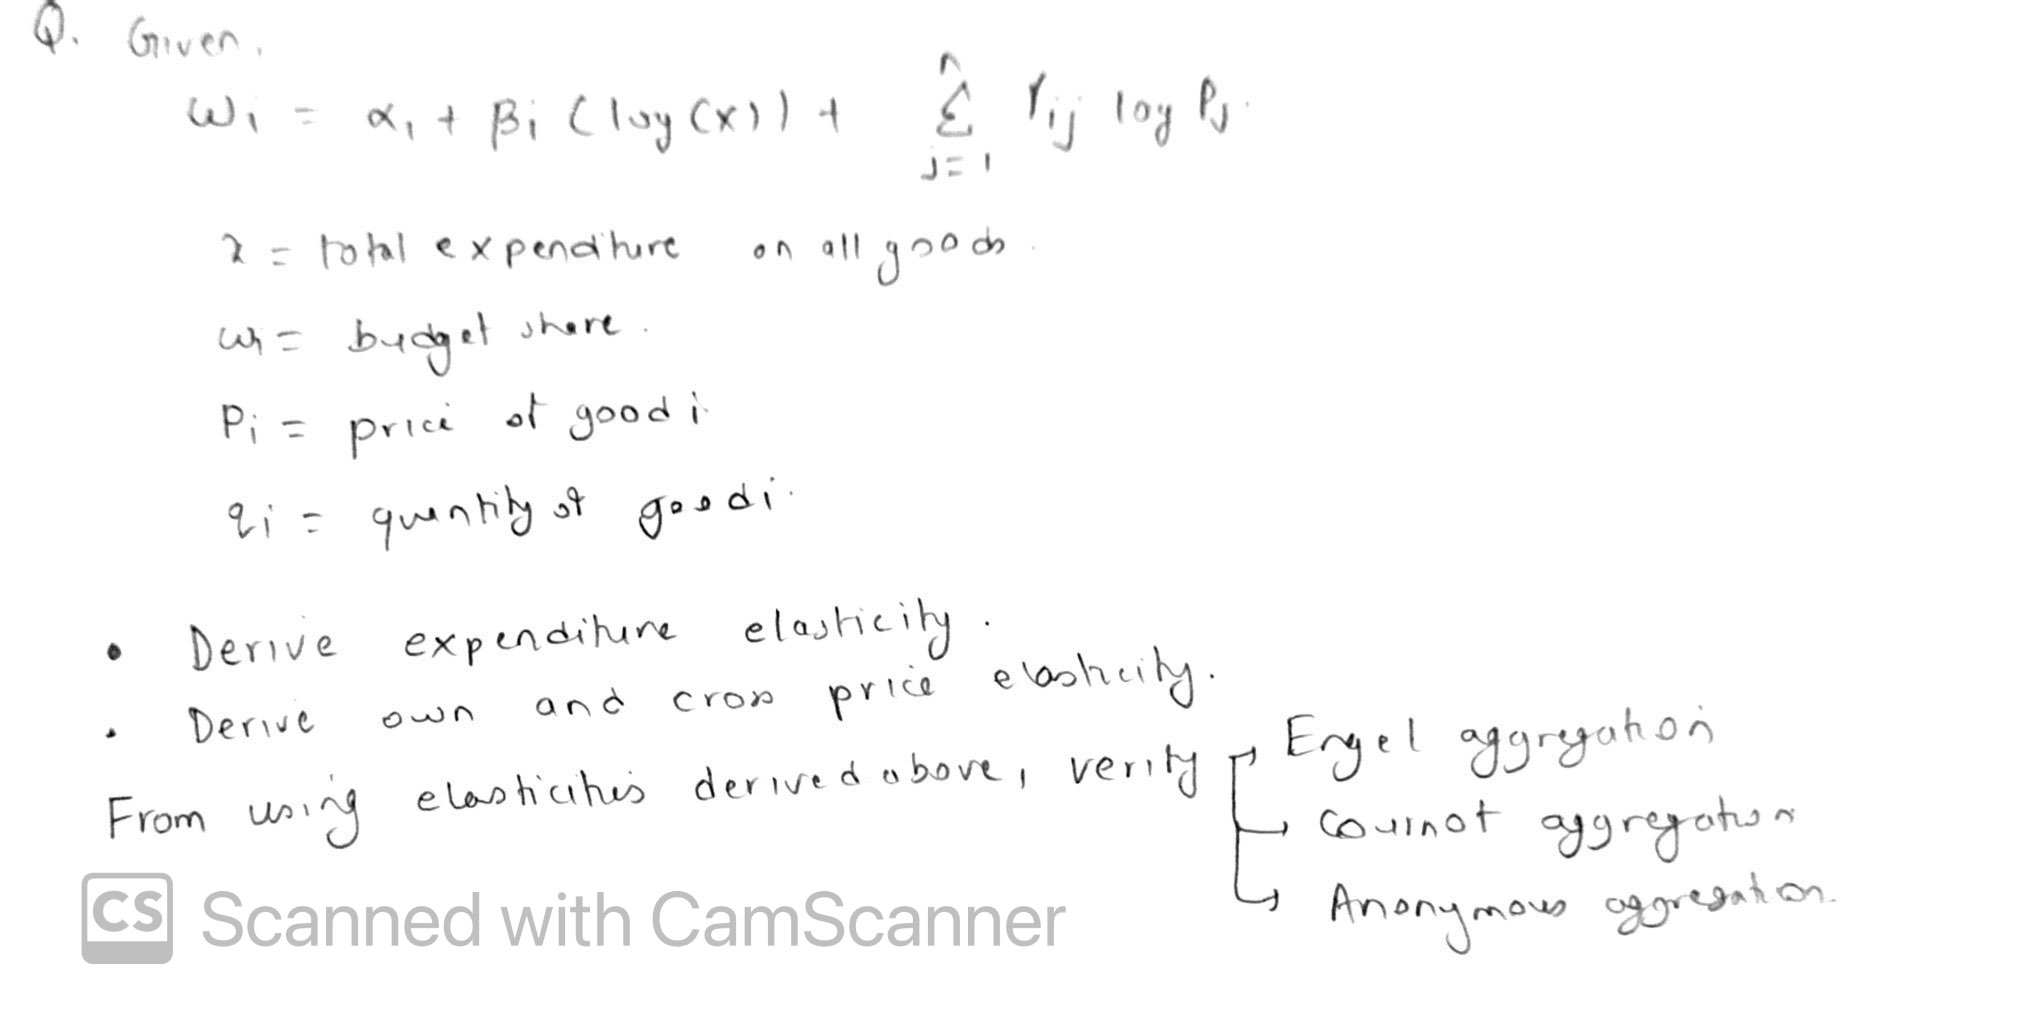 Q. Given,
wi = αi + βi (log(x)) + n Σ j=1 γij log Pj.
x = total expenditure on all goods.
wi = budget share.
Pi = price of good i
qi = quantity of good i.
• Derive expenditure elasticity.
• Derive own and cross price elasticity.
From using elasticities derived above, verify → Engel aggregation
→ Cournot aggregation
→ Anonymous aggregation.
CS Scanned with CamScanner